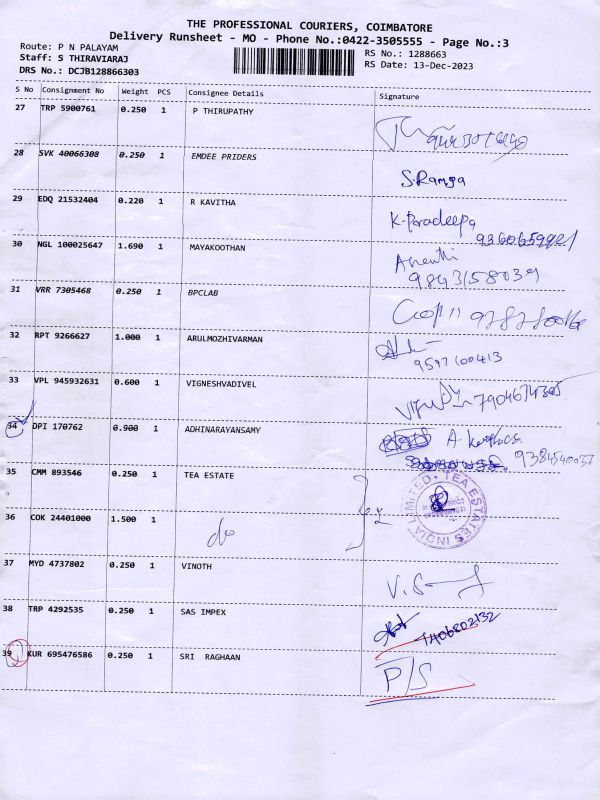 THE PROFESSIONAL COURIERS, COIMBATORE
Delivery Runsheet - MO - Phone No.:0422-3505555 - Page No.:3
Route: P N PALAYAM
RS No.: 1288663
Staff: S THIRAVIARAJ
RS Date: 13-Dec-2023
DRS No.: DCJB128866303
S No Consignment No Weight PCS Consignee Details Signature
27 TRP 5900761 0.250 1 P THIRUPATHY
28 SVK 40066308 0.250 1 EMDEE PRIDERS S.Ramya
29 EDQ 21532404 0.220 1 R KAVITHA K-Pradeepa
9360659921
30 NGL 100025647 1.690 1 MAYAKOOTHAN Ananthi
9843158039
31 VRR 7305468 0.250 1 BPCLAB
32 RPT 9266627 1.000 1 ARULMOZHIVARMAN
9597100413
33 VPL 945932631 0.600 1 VIGNESHVADIVEL
34 DPI 170762 0.900 1 ADHINARAYANSAMY
35 CMM 893546 0.250 1 TEA ESTATE
TEA ESTATES INDIA LIMITED
36 COK 24401000 1.500 1 do
37 MYD 4737802 0.250 1 VINOTH
38 TRP 4292535 0.250 1 SAS IMPEX
39 KUR 695476586 0.250 1 SRI RAGHAAN P/S